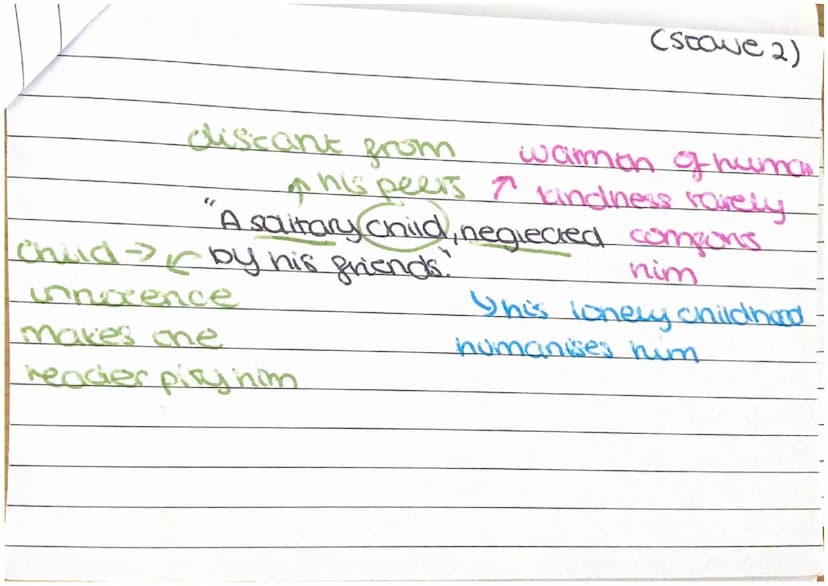 (Stave 2)
distant from
↑ his peers
warmth of human
↗ kindness rarely
"A solitary child, neglected
comforts
him
by his friends."
child → ↙
innocence
makes the
reader pity him
↳ his lonely childhood
humanises him